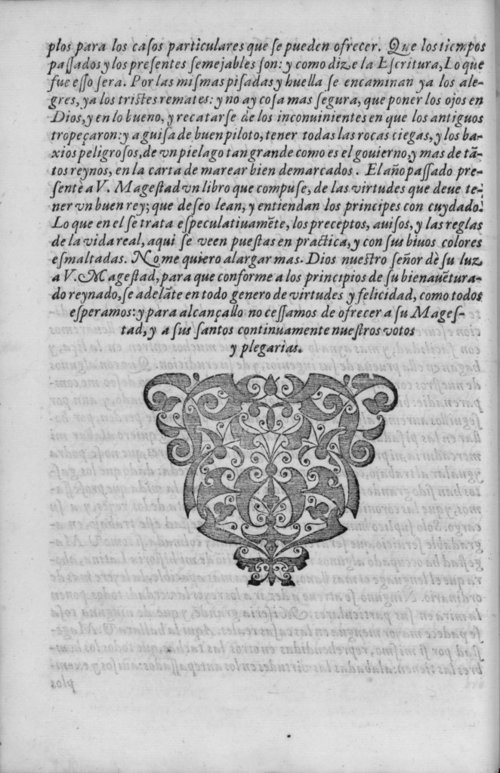 plos para los casos particulares que se pueden ofrecer. Que los tiempos
passados y los presentes semejables son: y como dize la Escritura, Lo que
fue esso sera. Por las mismas pisadas y huella se encaminan ya los ale-
gres, ya los tristes remates: y no ay cosa mas segura, que poner los ojos en
Dios, y en lo bueno, y recatarse de los inconuinientes en que los antiguos
tropeçaron: y a guisa de buen piloto, tener todas las rocas ciegas, y los ba-
xios peligrosos, de vn pielago tan grande como es el gouierno, y mas de tã-
tos reynos, en la carta de marear bien demarcados. El año passado pre-
sente a V. Magestad vn libro que compuse, de las virtudes que deue te-
ner vn buen rey; que deseo lean, y entiendan los principes con cuydado.
Lo que en el se trata especulatiuamẽte, los preceptos, auisos, y las reglas
de la vida real, aqui se veen puestas en practica, y con sus biuos colores
esmaltadas. No me quiero alargar mas. Dios nuestro señor dè su luz
a V. Magestad, para que conforme a los principios de su bienauẽtura-
do reynado, se adelãte en todo genero de virtudes y felicidad, como todos
esperamos: y para alcançallo no cessamos de ofrecer a su Mages-
tad, y a sus santos continuamente nuestros votos
y plegarias.